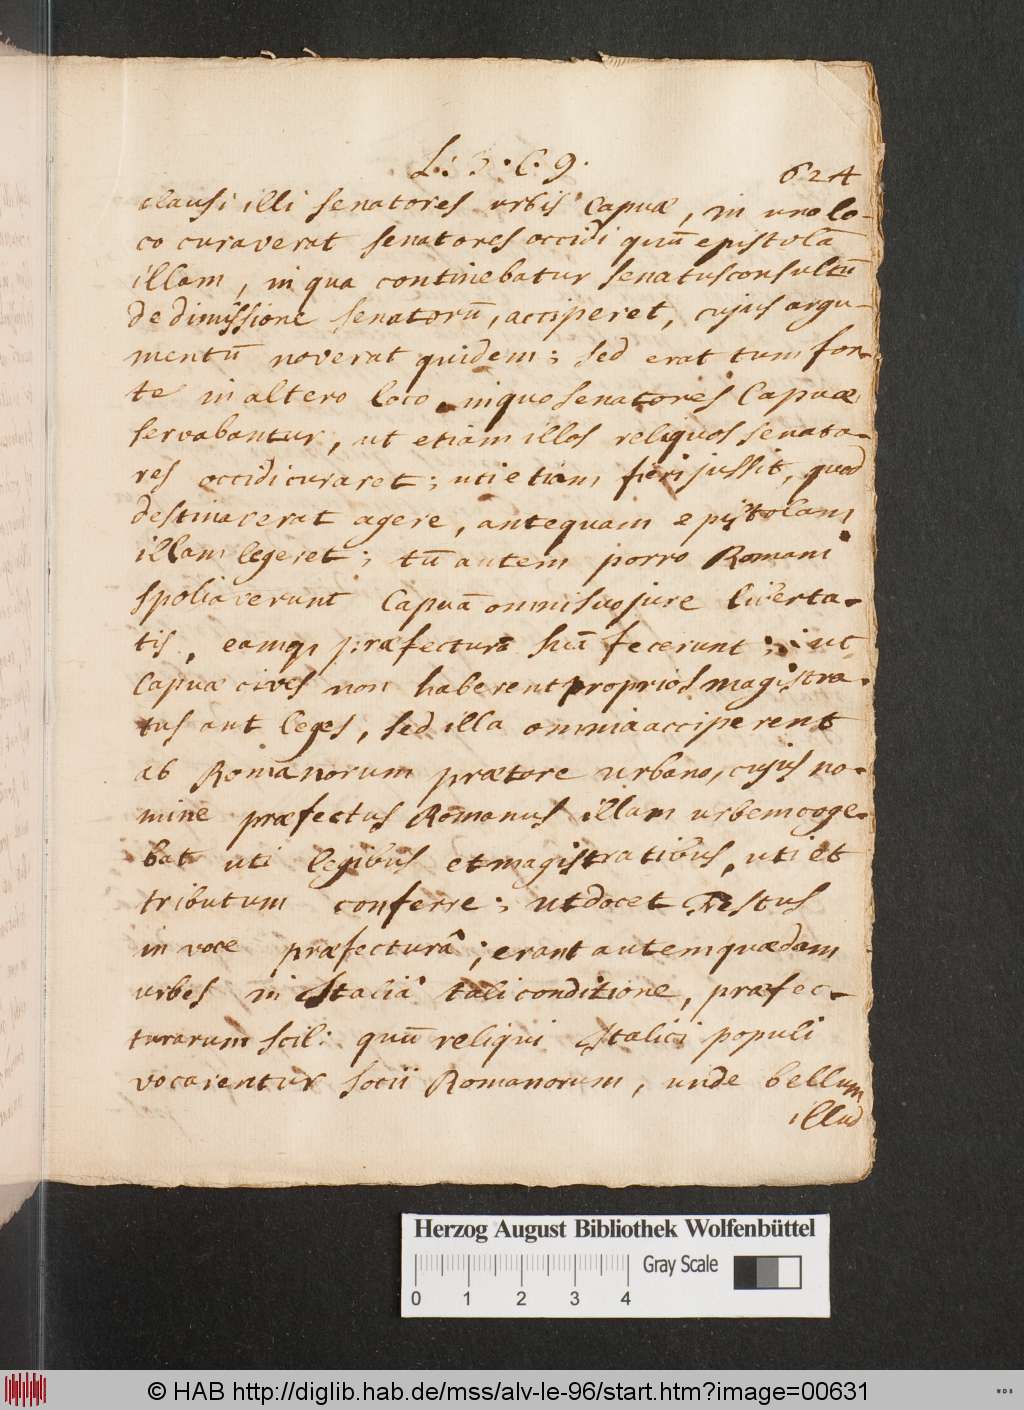 L: 3. C. 9.
624
clausi illi senatores urbis Capuæ, in uno lo-
co curaverat senatores occidi quū epistolā
illam, in qua continebatur senatusconsultū
de dimissione senatorū, acciperet, cujus argu-
mentū noverat quidem; sed erat tum for-
te in altero loco, in quo senatores Capuæ
servabantur, ut etiam illos reliquos senato-
res occidi curaret; uti etiam fieri jussit, quod
destinaverat agere, antequam epistolam
illam legeret; tū autem porro Romani
spoliaverunt Capuā omni suo jure liberta-
tis, eamq, præfecturā suā fecerunt; ut
Capuæ cives non haberent proprios magistra-
tus aut leges, sed illa omnia acciperent
ab Romanorum prætore urbano, cujus no-
mine præfectus Romanus illam urbem coge-
bat uti legibus et magistratibus, uti et
tributum conferre; ut docet Festus
in voce præfecturâ; erant autem quædam
urbes in Italiâ tali conditione, præfec-
turarum scil: quū reliqui Italici populi
vocarentur socii Romanorum, unde bellum
illud
Herzog August Bibliothek Wolfenbüttel
Gray Scale
0 1 2 3 4
© HAB http://diglib.hab.de/mss/alv-le-96/start.htm?image=00631